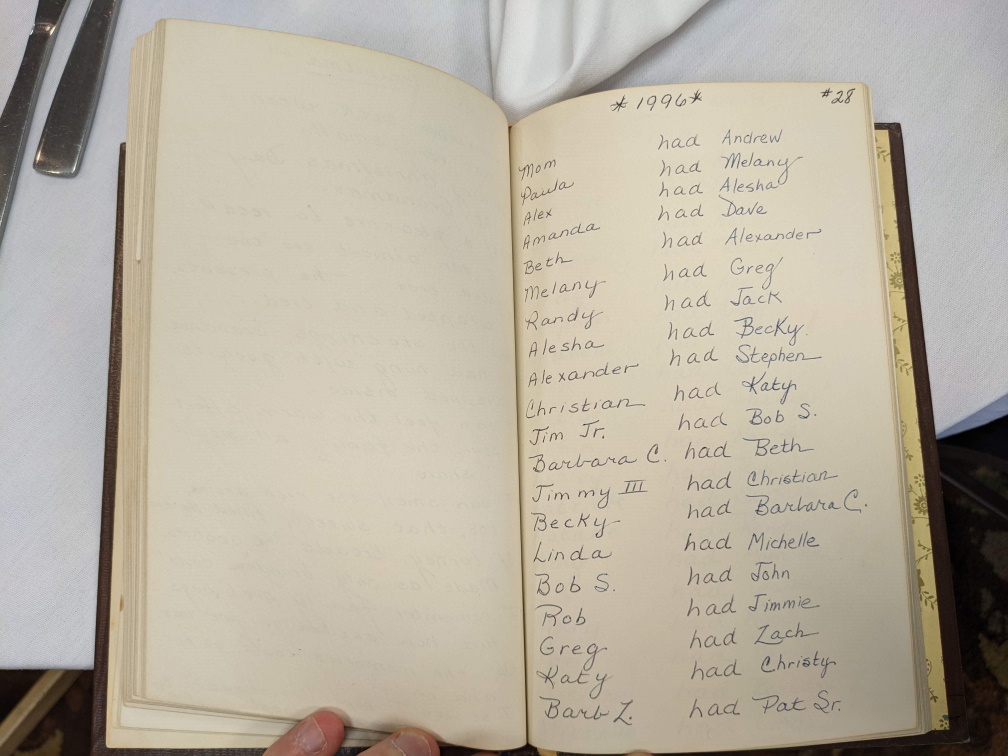 *1996* #28
Mom had Andrew
Paula had Melany
Alex had Alesha
Amanda had Dave
Beth had Alexander
Melany had Greg
Randy had Jack
Alesha had Becky
Alexander had Stephen
Christian had Katy
Jim Jr. had Bob S.
Barbara C. had Beth
Jimmy III had Christian
Becky had Barbara C.
Linda had Michelle
Bob S. had John
Rob had Jimmie
Greg had Zach
Katy had Christy
Barb Z. had Pat Sr.